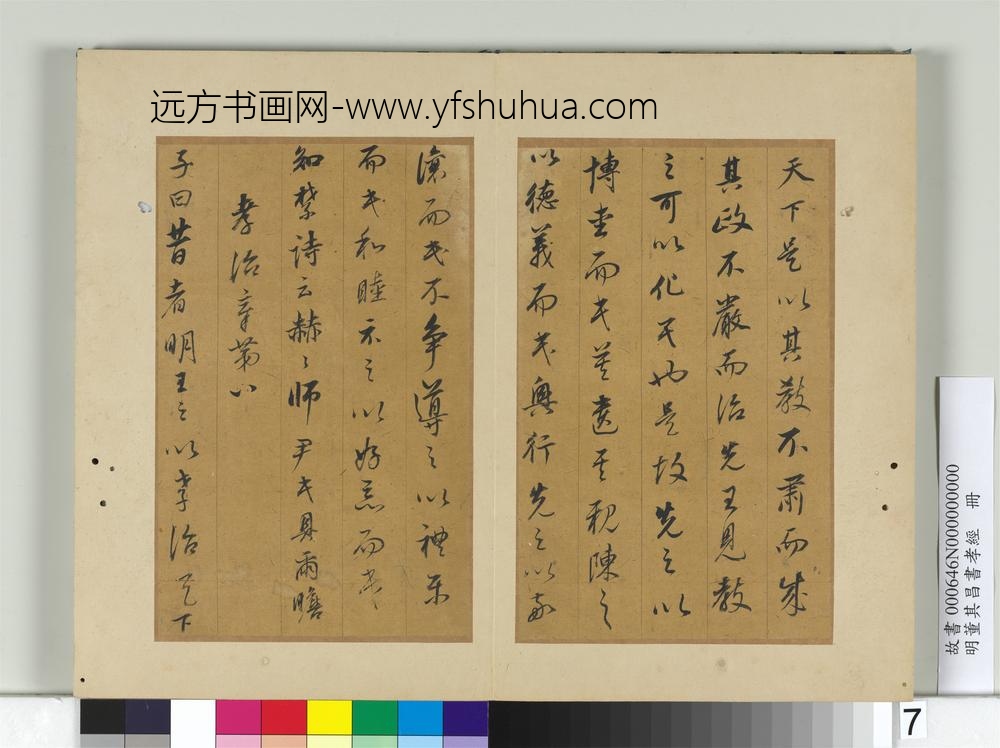 远方书画网-www.yfshuhua.com
天下是以其教不肅而成
其政不嚴而治先王見教
之可以化民也是故先之以
博愛而民莫遺其親陳之
以德義而民興行先之以敬
讓而民不爭導之以禮樂
而民和睦示之以好惡而民
知禁詩云赫〻師尹民具爾瞻
孝治章第八
子曰昔者明王之以孝治天下
故書000646N000000000
明董其昌書孝經 冊
7